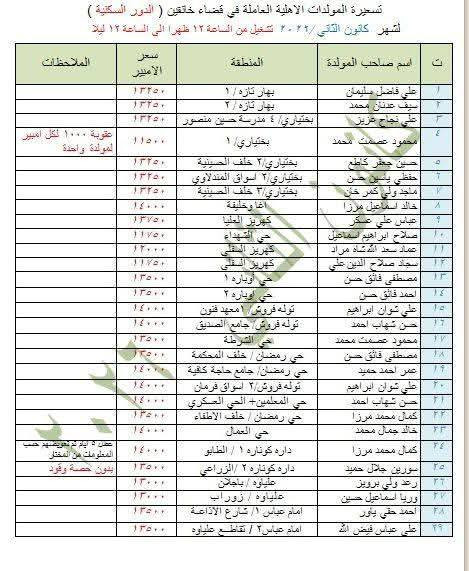 تسعيرة المولدات الاهلية العاملة في قضاء خانقين ( الدور السكنية )
لشهر كانون الثاني /٢٠٢٢ تشغيل من الساعة ١٢ ظهرا الى الساعة ١٢ ليلا
ت اسم صاحب المولدة المنطقة سعر الامبير الملاحظات
١ علي فاضل سليمان بهار تازه / ١ ١٣٢٥٠
٢ سيف عدنان محمد بهار تازه / ٢ ١٣٢٥٠
٣ علي نجاح عزيز بختياري/ ٤ مدرسة حسين منصور ١٣٢٥٠
٤ محمود عصمت محمد بختياري/ ١ ١١٥٠٠ عقوبة ١٠٠٠ لكل امبير لمولدة واحدة
٥ حسين جعفر كاطع بختياري/٢ خلف الحسينية ١٣٢٥٠
٦ حفظي ياسين حسن بختياري/٢ اسواق المندلاوي ١٣٢٥٠
٧ ماجد ولي كمر خان بختياري/٣ خلف الحسينية ١٣٢٥٠
٨ خالد اسماعيل مرزا اغا وخليفة ١٤٠٠٠
٩ عباس علي عسكر كهريز العليا ١٣٧٥٠
١٠ صلاح ابراهيم اسماعيل حي الشهداء ١١٧٥٠
١١ عماد سعد الله شاه مراد كهريز السفلى ١٢٠٠٠
١٢ سجاد صلاح الدين علي كهريز السفلى ١١٧٥٠
١٣ مصطفى فائق حسن حي اوباره ١ ١٣٥٠٠
١٤ احمد فائق حسن حي اوباره ٢
١٥ علي شوان ابراهيم توله فروش/ ١معهد فنون ١٤٠٠٠
١٦ حسن شهاب احمد توله فروش/ جامع الصديق ١٤٠٠٠
١٧ محمود عصمت محمد حي الشرطة ١٣٥٠٠
١٨ مصطفى فائق حسن حي رمضان / خلف المحكمة ١٣٥٠٠
١٩ عمر احمد حميد حي رمضان/ جامع حاجة كافية ١٤٠٠٠
٢٠ علي شوان ابراهيم توله فروش/٢ اسواق فرمان ١٤٠٠٠
٢١ حسن شهاب احمد حي المعلمين+ الحي العسكري ١٤٠٠٠
٢٢ كمال محمد مرزا حي رمضان / خلف الاطفاء ١٣٥٠٠
٢٣ خالد جمال محمد حي العمال ١٤٠٠٠
٢٤ كمال محمد مرزا داره كوتاره ١ / الطابو ١٤٠٠٠ عطل ٥ ايام تم تعويضهم حسب المعلومات من المختار
٢٥ سورين جلال حميد داره كوتاره ٢ /الزراعي ١٣٥٠٠ بدون حصة وقود
٢٦ رعد ولي برويز علياوه / باجلان ١٣٠٠٠
٢٧ وريا اسماعيل حسين علياوه / زوراب ١٣٠٠٠
٢٨ احمد حقي ياور امام عباس١ / شارع الاذاعة ١٣٥٠٠
٢٩ علي عباس فيض الله امام عباس٢ / تقاطع علياوه ١٣٥٠٠